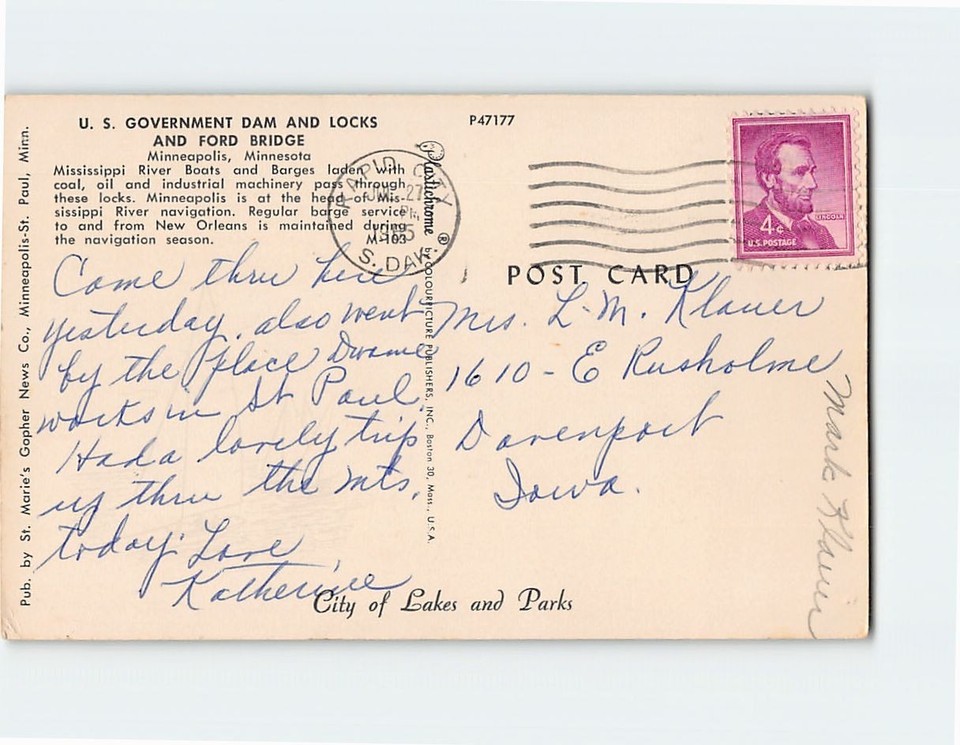 U. S. GOVERNMENT DAM AND LOCKS
AND FORD BRIDGE
Minneapolis, Minnesota
Mississippi River Boats and Barges laden with
coal, oil and industrial machinery pass through
these locks. Minneapolis is at the head of Mis-
sissippi River navigation. Regular barge service
to and from New Orleans is maintained during
the navigation season.
M-103
P47177
RAPID CITY
27
PM
S. DAK.
LINCOLN
4¢
U.S. POSTAGE
POST CARD
Come thru here
yesterday, also went
by the place Dwame
works in St Paul.
Had a lovely trip
up thru the mts.
today. Love
Katherine
Mrs. L. M. Klauer
1610 - E Rusholme
Davenport
Iowa.
Mark
City of Lakes and Parks
Pub. by St. Marie's Gopher News Co., Minneapolis-St. Paul, Minn.
Plastichrome ® by COLOURPICTURE PUBLISHERS, INC., Boston 30, Mass., U.S.A.